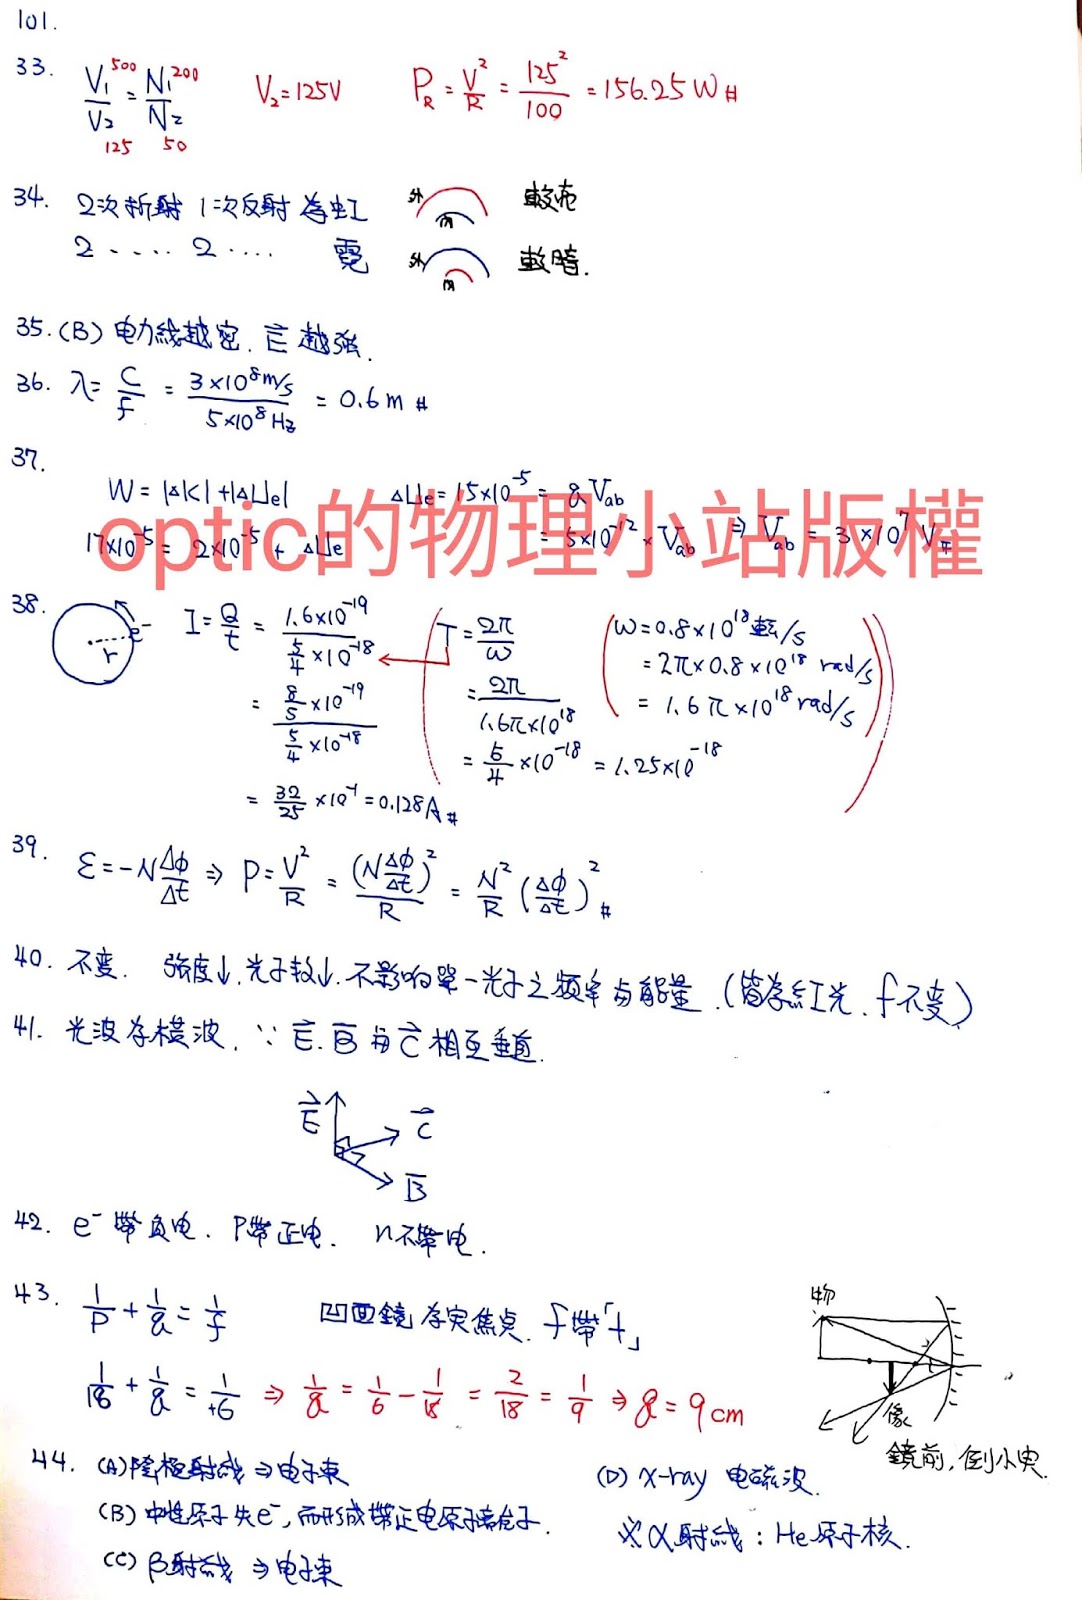 101.
33. V₁/V₂ = N₁/N₂ 500 200 125 50 V₂=125V P_R = V²/R = 125²/100 = 156.25 W #
34. 2次折射 1次反射 為虹 外 內 較亮
2 ..... 2 .... 霓 外 內 較暗.
35. (B) 电力線越密. E 越強.
36. λ = C/f = 3×10⁸m/s / 5×10⁸Hz = 0.6m #
37.
W = |ΔK| + |ΔUe| ΔUe = 15×10⁻⁵ = qVab
17×10⁻⁵ = 2×10⁻⁵ + ΔUe = 5×10⁻¹² × Vab ⇒ Vab = 3×10⁷ V #
optic的物理小站版權
38. e⁻ r I = Q/t = 1.6×10⁻¹⁹ / (5/4 ×10⁻¹⁸) T = 2π/ω (ω = 0.8×10¹⁸ 転/s
= 2π×0.8×10¹⁸ rad/s
= 8/5 ×10⁻¹⁹ / (5/4 ×10⁻¹⁸) = 2π / 1.6π×10¹⁸ = 1.6π×10¹⁸ rad/s)
= 5/4 ×10⁻¹⁸ = 1.25×10⁻¹⁸
= 32/25 ×10⁻¹ = 0.128A #
39. ε = -N Δφ/Δt ⇒ P = V²/R = (N Δφ/Δt)²/R = N²/R (Δφ/Δt)² #
40. 不变. 強度↓, 光子数↓, 不影响單一光子之频率与能量. (皆為紅光, f不变)
41. 光波為橫波, ∵ E. B 与 C 相互垂直.
E C
B
42. e⁻ 帶負电. P帶正电. n不帶电.
43. 1/P + 1/q = 1/f 凹面鏡為实焦点, f帶「+」 物
1/18 + 1/q = 1/+6 ⇒ 1/q = 1/6 - 1/18 = 2/18 = 1/9 ⇒ q = 9 cm 像
鏡前, 倒小实.
44. (A)陰極射线 ⇒ 电子束 (D) X-ray 电磁波.
(B) 中性原子失e⁻, 而形成帶正电原子離子. ※α射线: He原子核.
(C) β射线 ⇒ 电子束